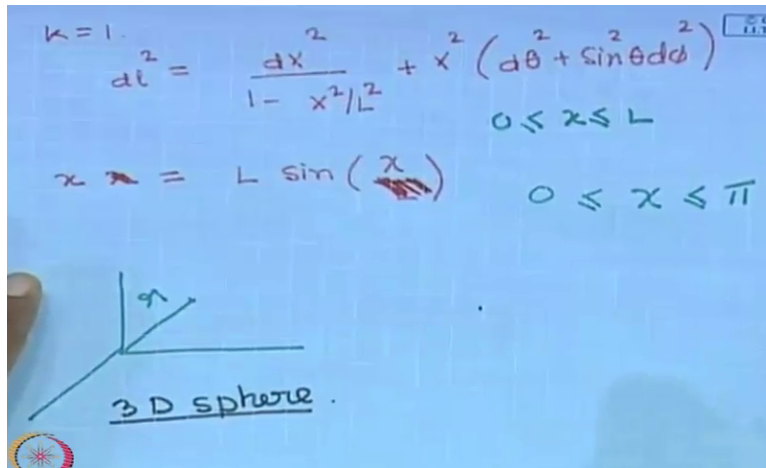 k = 1.
dl² = dx² / (1 - x²/L²) + x² (dθ² + sin²θ dφ²)
0 ≤ x ≤ L
x = L sin (χ)
0 ≤ χ ≤ π
χ
3D sphere.